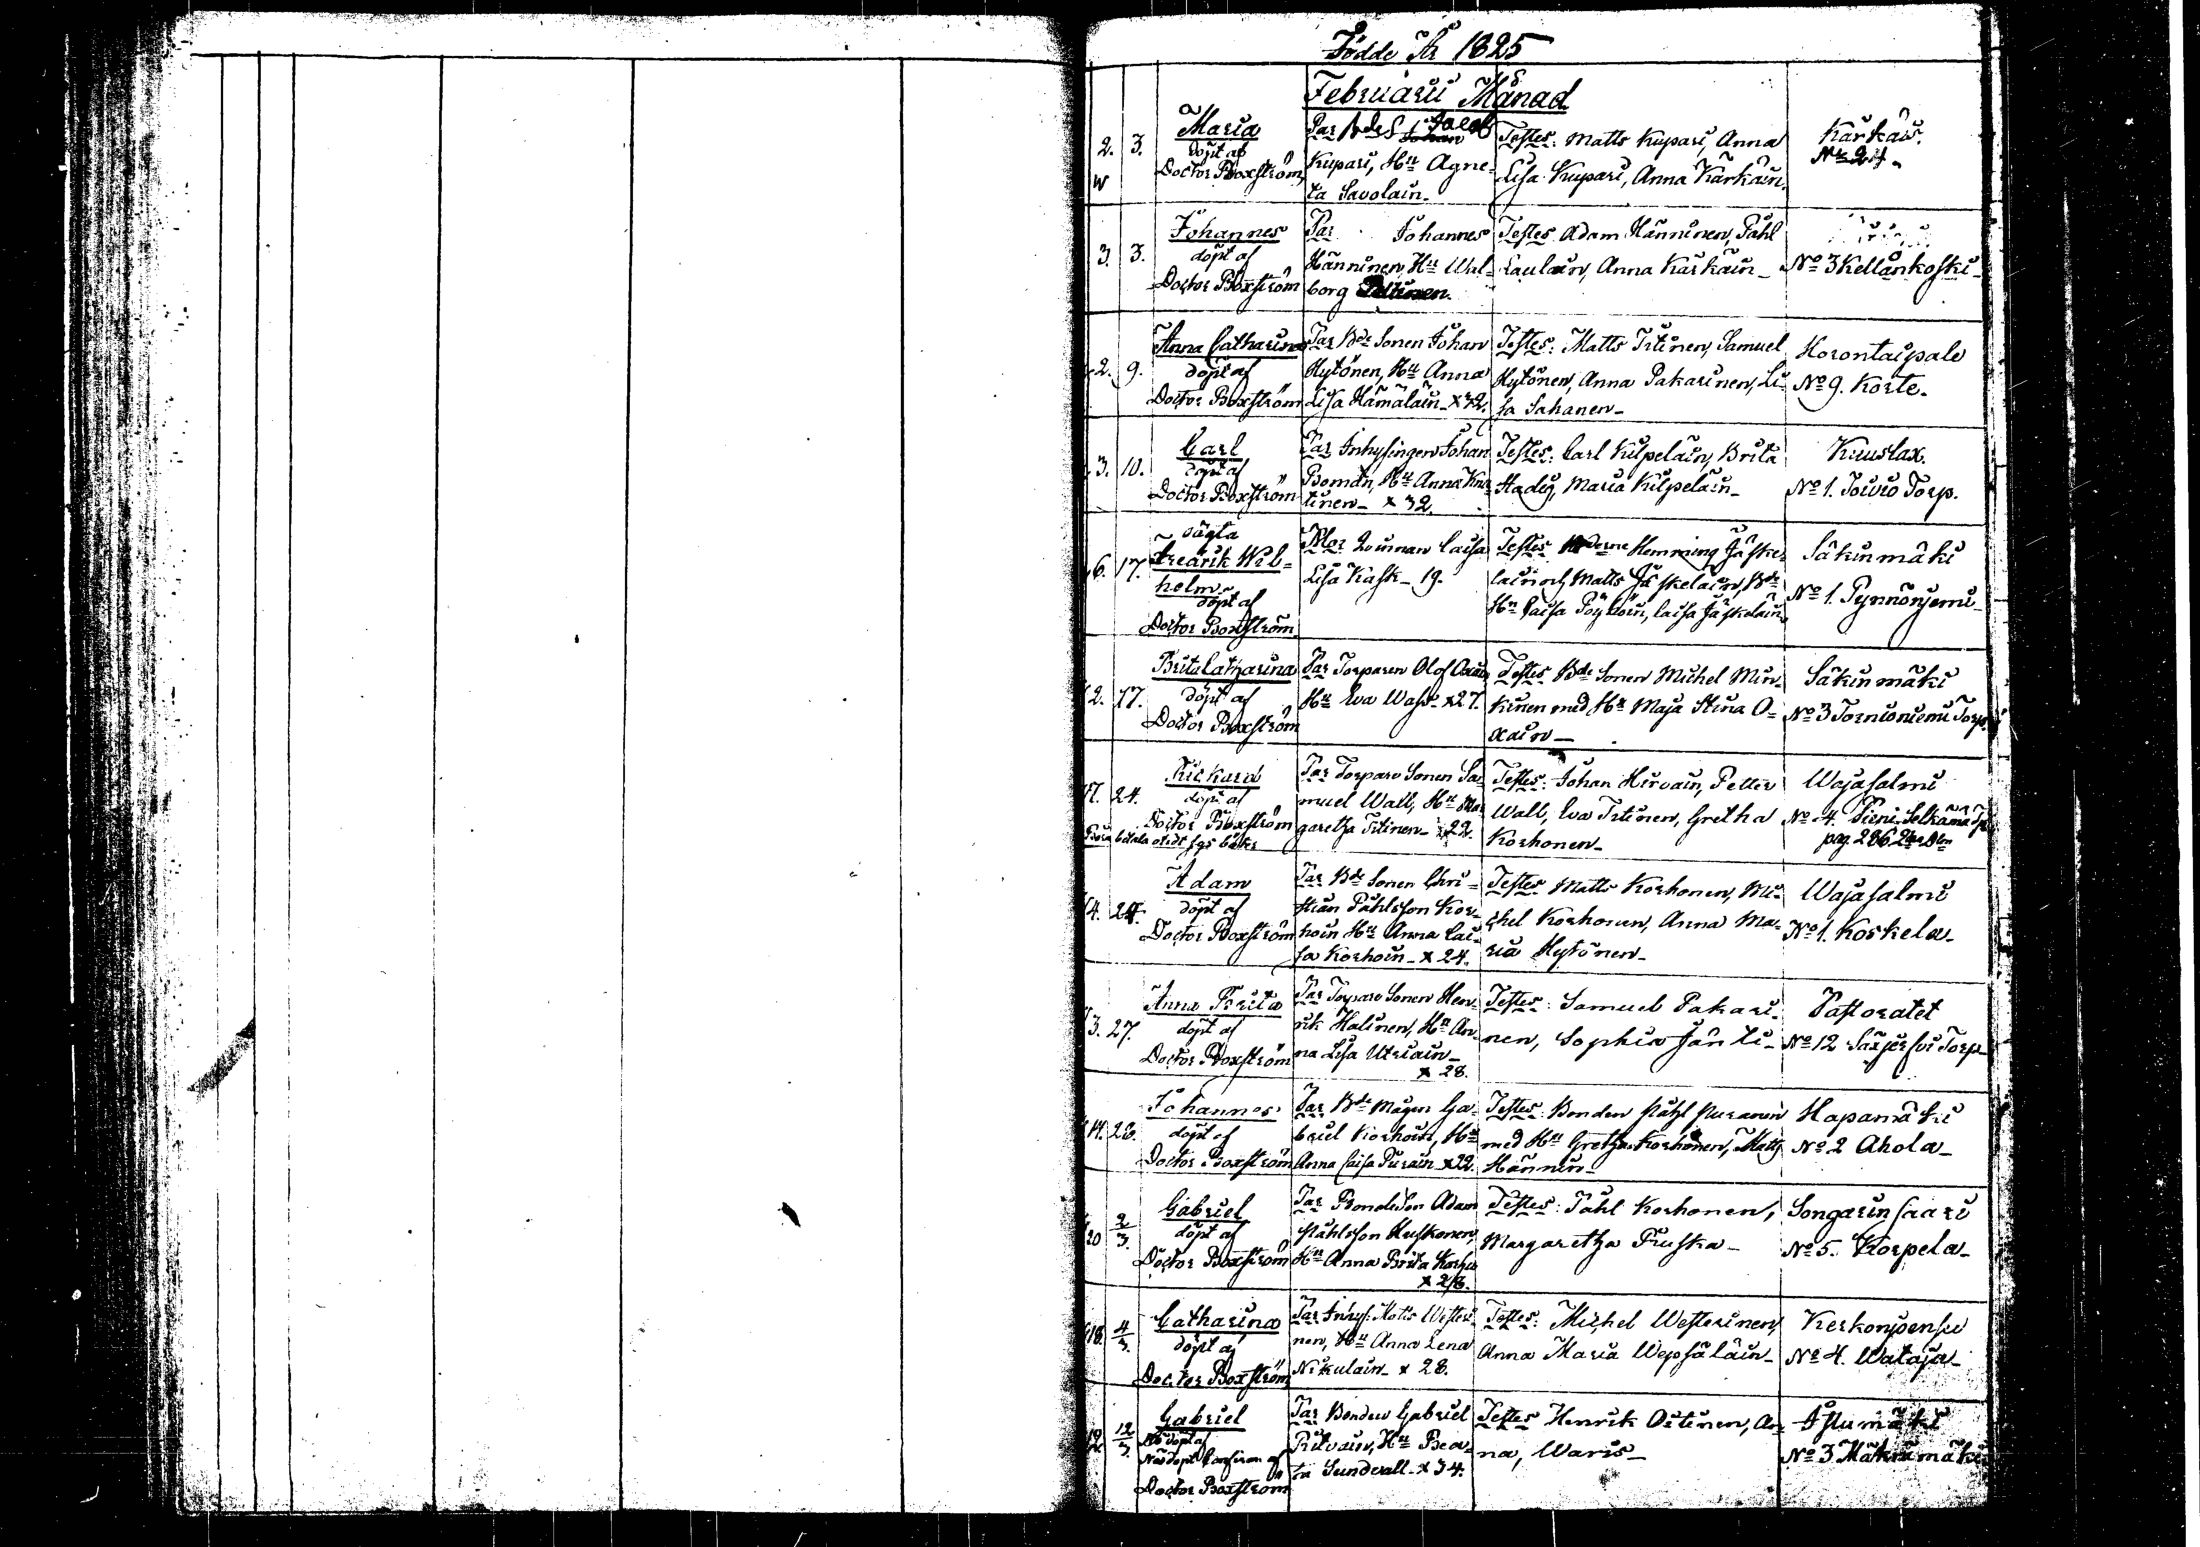 Födde År 1825
Februarii Månad
2. 3. Maria
döpt af
Doctor Boxström
Par Bde S Jacob
Kupari, Hu Agne-
ta Savolain_
Testes: Matts Kupari, Anna
Lisa Kupari, Anna Kärkäin
Kärkäis.
No 24_
3. 3. Johannes
döpt af
Doctor Boxström
Par Johannes
Hänninen, Hu Wal-
borg
Testes Adam Hänninen, Påhl
Laulain, Anna Kärkäin_
No 3 Kellänkoski_
2. 9. Anna Catharina
döpt af
Doctor Boxström
Par Bde Sonen Johan
Hytönen, Hu Anna
Lisa Hämäläin_ x 32.
Testes: Matts Titinen, Samuel
Hytönen, Anna Pakarinen, Li-
sa Sahanen_
Horontaipale
No 9. Korte_
3. 10. Carl
döpt af
Doctor Boxström
Par Inhysingen Johan
Boman, Hu Anna Knu-
tinen_ x 32.
Testes: Carl Kilpeläin, Brita
Hadig Maria Kilpeläin_
Kuuslax.
No 1. Toivio Torp.
6. 17. oägta
Fredrik Wil-
helm
döpt af
Doctor Boxström
Mor Qvinnan Caisa
Lisa Kask_ 19.
Testes Hemming Jäske-
läin och Matts Jäskeläin, Bde
Hn Caisa Pöyhöin, Caisa Jäskeläin
Säkinmäki
No 1. Pynnönjemi_
2. 17. Brita Catharina
döpt af
Doctor Boxström
Par Torparen Olof Oxain
Hu Eva Wass_ x 27.
Testes Bde Sonen Michel Min-
kinen med Hu Maja Stina O-
xain_
Säkinmäki
No 3 Tornioniemi Torp.
17. 24. Rickard
döpt af
Doctor Boxström
Par Torpare Sonen Sa-
muel Wall, Hu Mar
garetha Titinen_ 22.
Testes: Johan Hirvain, Petter
Wall, Eva Titinen, Gretha
Korhonen_
Wajasalmi
No 4. Pieni Selkämä Tp
pag. 286.
14. 24. Adam
döpt af
Doctor Boxström
Par Bde Sonen Chri-
stian Påhlsson Kor-
hoin Hu Anna Cai-
sa Korhoin_ x 24.
Testes Matts Korhonen, Mi-
chel Korhonen, Anna Ma-
ria Hytönen_
Wajasalmi
No 1. Koskela_
3. 27. Anna Brita
döpt af
Doctor Boxström
Par Torpare Sonen Hen-
rik Halinen, Hu An-
na Lisa Utriain_
x 28.
Testes: Samuel Pakari-
nen, Sophia Jänti_
Pastoratet
No 12 Särjersvi Torp_
14. 28. Johannes
döpt af
Doctor Boxström
Par Bde Mågen Ga-
briel Korhoin, Hu
Anna Caisa Purain_ x 32.
Testes: Bonden Påhl Puranen
med Hu Gretha Korhonen, Matts
Hännin_
Hapamäki
No 2 Ahola_
20 2/3. Gabriel
döpt af
Doctor Boxström
Par BondeSon Adam
Påhlsson Huskonen,
Hu Anna Brita Korho
x 28.
Testes: Påhl Korhonen,
Margaretha Ruska_
Songarinsaari
No 5. Korpela_
18. 4/3. Catharina
döpt af
Doctor Boxström
Par Inhys. Matts Westeri-
nen, Hu Anna Lena
Nikulain_ x 28.
Testes: Michel Westerinen,
Anna Maria Wepsäläin_
Kerkonjoensu
No 4. Wataja_
12 12/3. Gabriel
Nöddöpt
Doctor Boxström
Par Bonden Gabriel
Pitväin, Hu Bea-
ta Sundvall_ x 34.
Testes Henrik Ortinen, An-
na, Waris_
Istumäki
No 3 Mäkrämäki